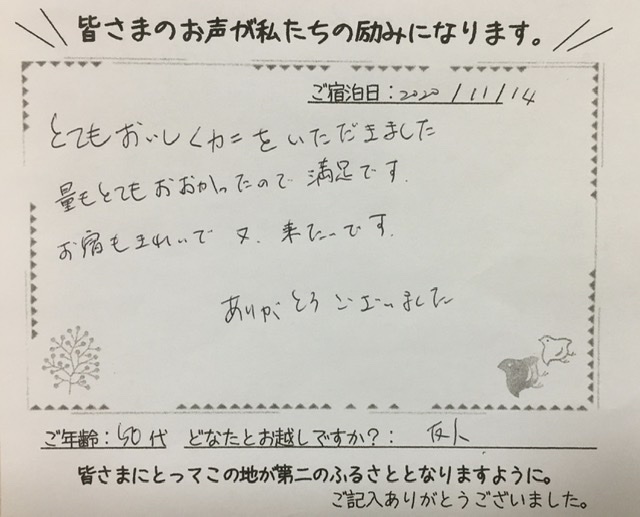 皆さまのお声が私たちの励みになります。
ご宿泊日:2020/11/14
とてもおいしくカニをいただきました
量もとてもおおかったので満足です.
お宿もきれいで又、来たいです.
ありがとうございました
ご年齢:50代 どなたとお越しですか?: 友人
皆さまにとってこの地が第二のふるさととなりますように。
ご記入ありがとうございました。